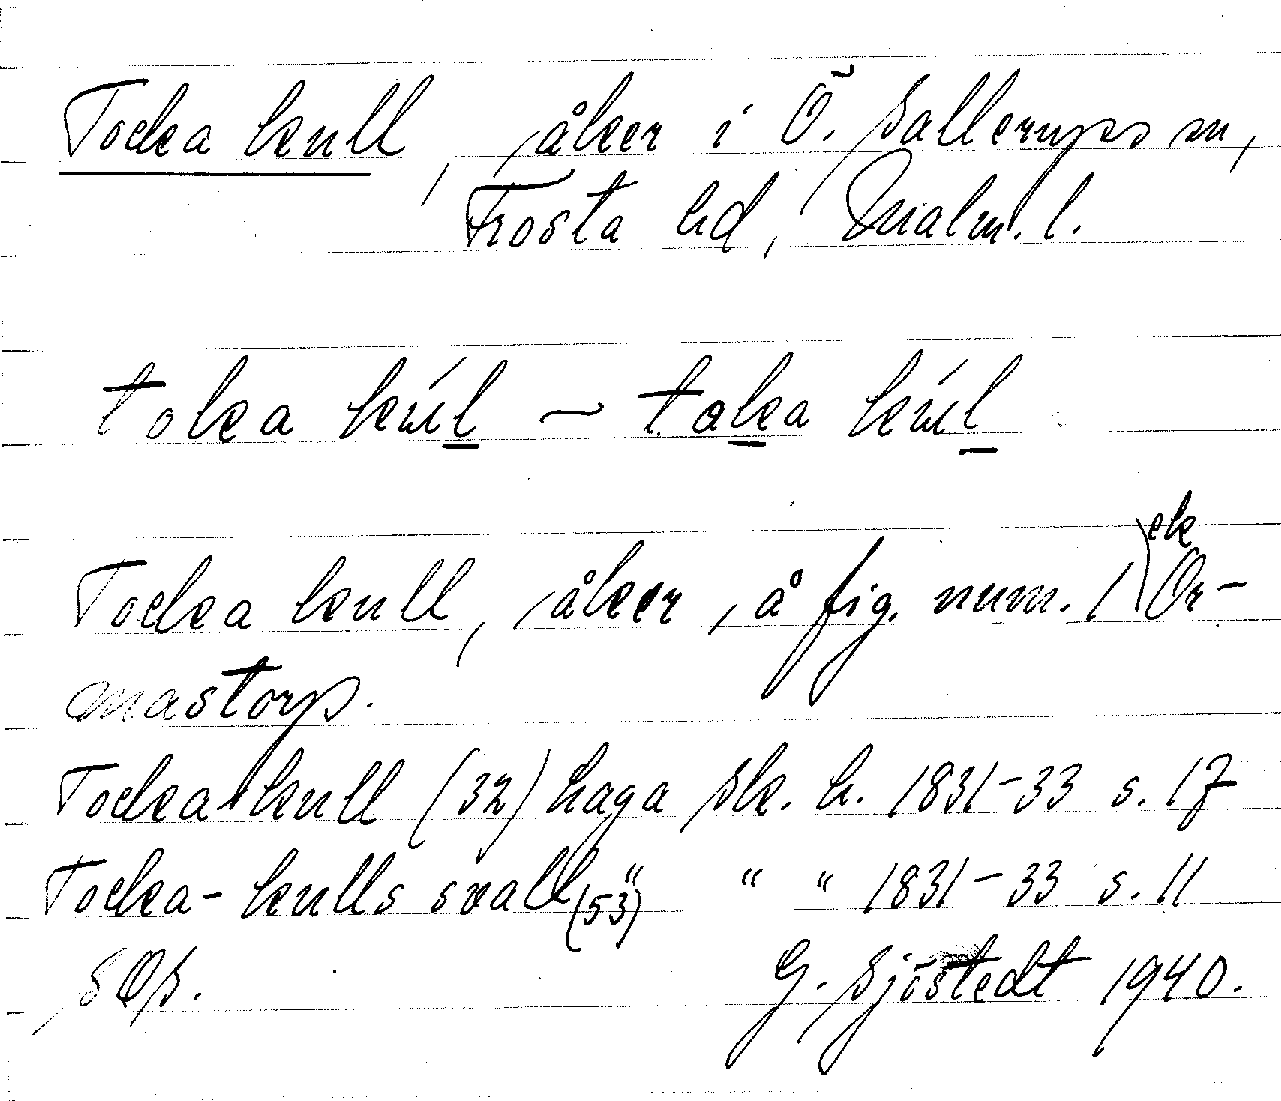 Tocka kull, åker i Ö. Sallerups sn,
Frosta hd, Malm. l.
toka kúl ~ toka kúl
Tocka kull, åker, å fig. num. 1 ek Or-
mastorp.
Tocka kull (32) haga sk. h. 1831-33 s. 17
Tocka-kulls svall (53) " " " 1831-33 s. 11
G. Sjöstedt 1940.